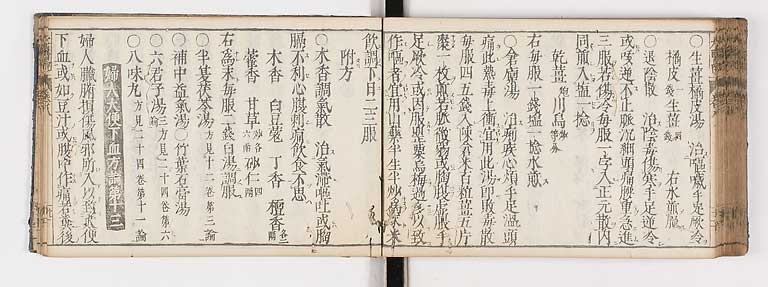 ○生薑橘皮湯 治嘔噦手足厥冷
橘皮 生薑 右水煎服
○退陰散 治陰毒傷寒手足逆冷
或咳逆不止脈沉細頭痛腰重急進
三服若傷冷每服一字入正元散內
同煎入塩一捻
乾薑炮 川烏
右每服一錢塩一捻水煎
○倉廩湯 治痢疾心煩手足溫頭
痛此熱毒上衝宜用此湯即敗毒散
每服四五錢入陳倉米百粒薑五片
棗一枚煎若
足厥冷或因服罌粟烏梅
作嘔者宜用山藥半生半炒
飲調下日二三服
附方
○木香調氣散 治氣滯嘔吐或胸
膈不利心腹刺痛飲食不思
木香 白豆蔻 丁香 檀香
藿香 甘草 砂仁
右為末每服二錢白湯調服
○半夏茯苓湯 方見十二卷第三論
○補中益氣湯 ○竹葉石膏湯
○六君子湯 方見二十四卷第六
○八味丸 方見二十四卷第十一論
婦人大便下血方論第十三
婦人臟腑損傷風邪所入以致大便
下血或如豆汁或腹中作痛若糞後